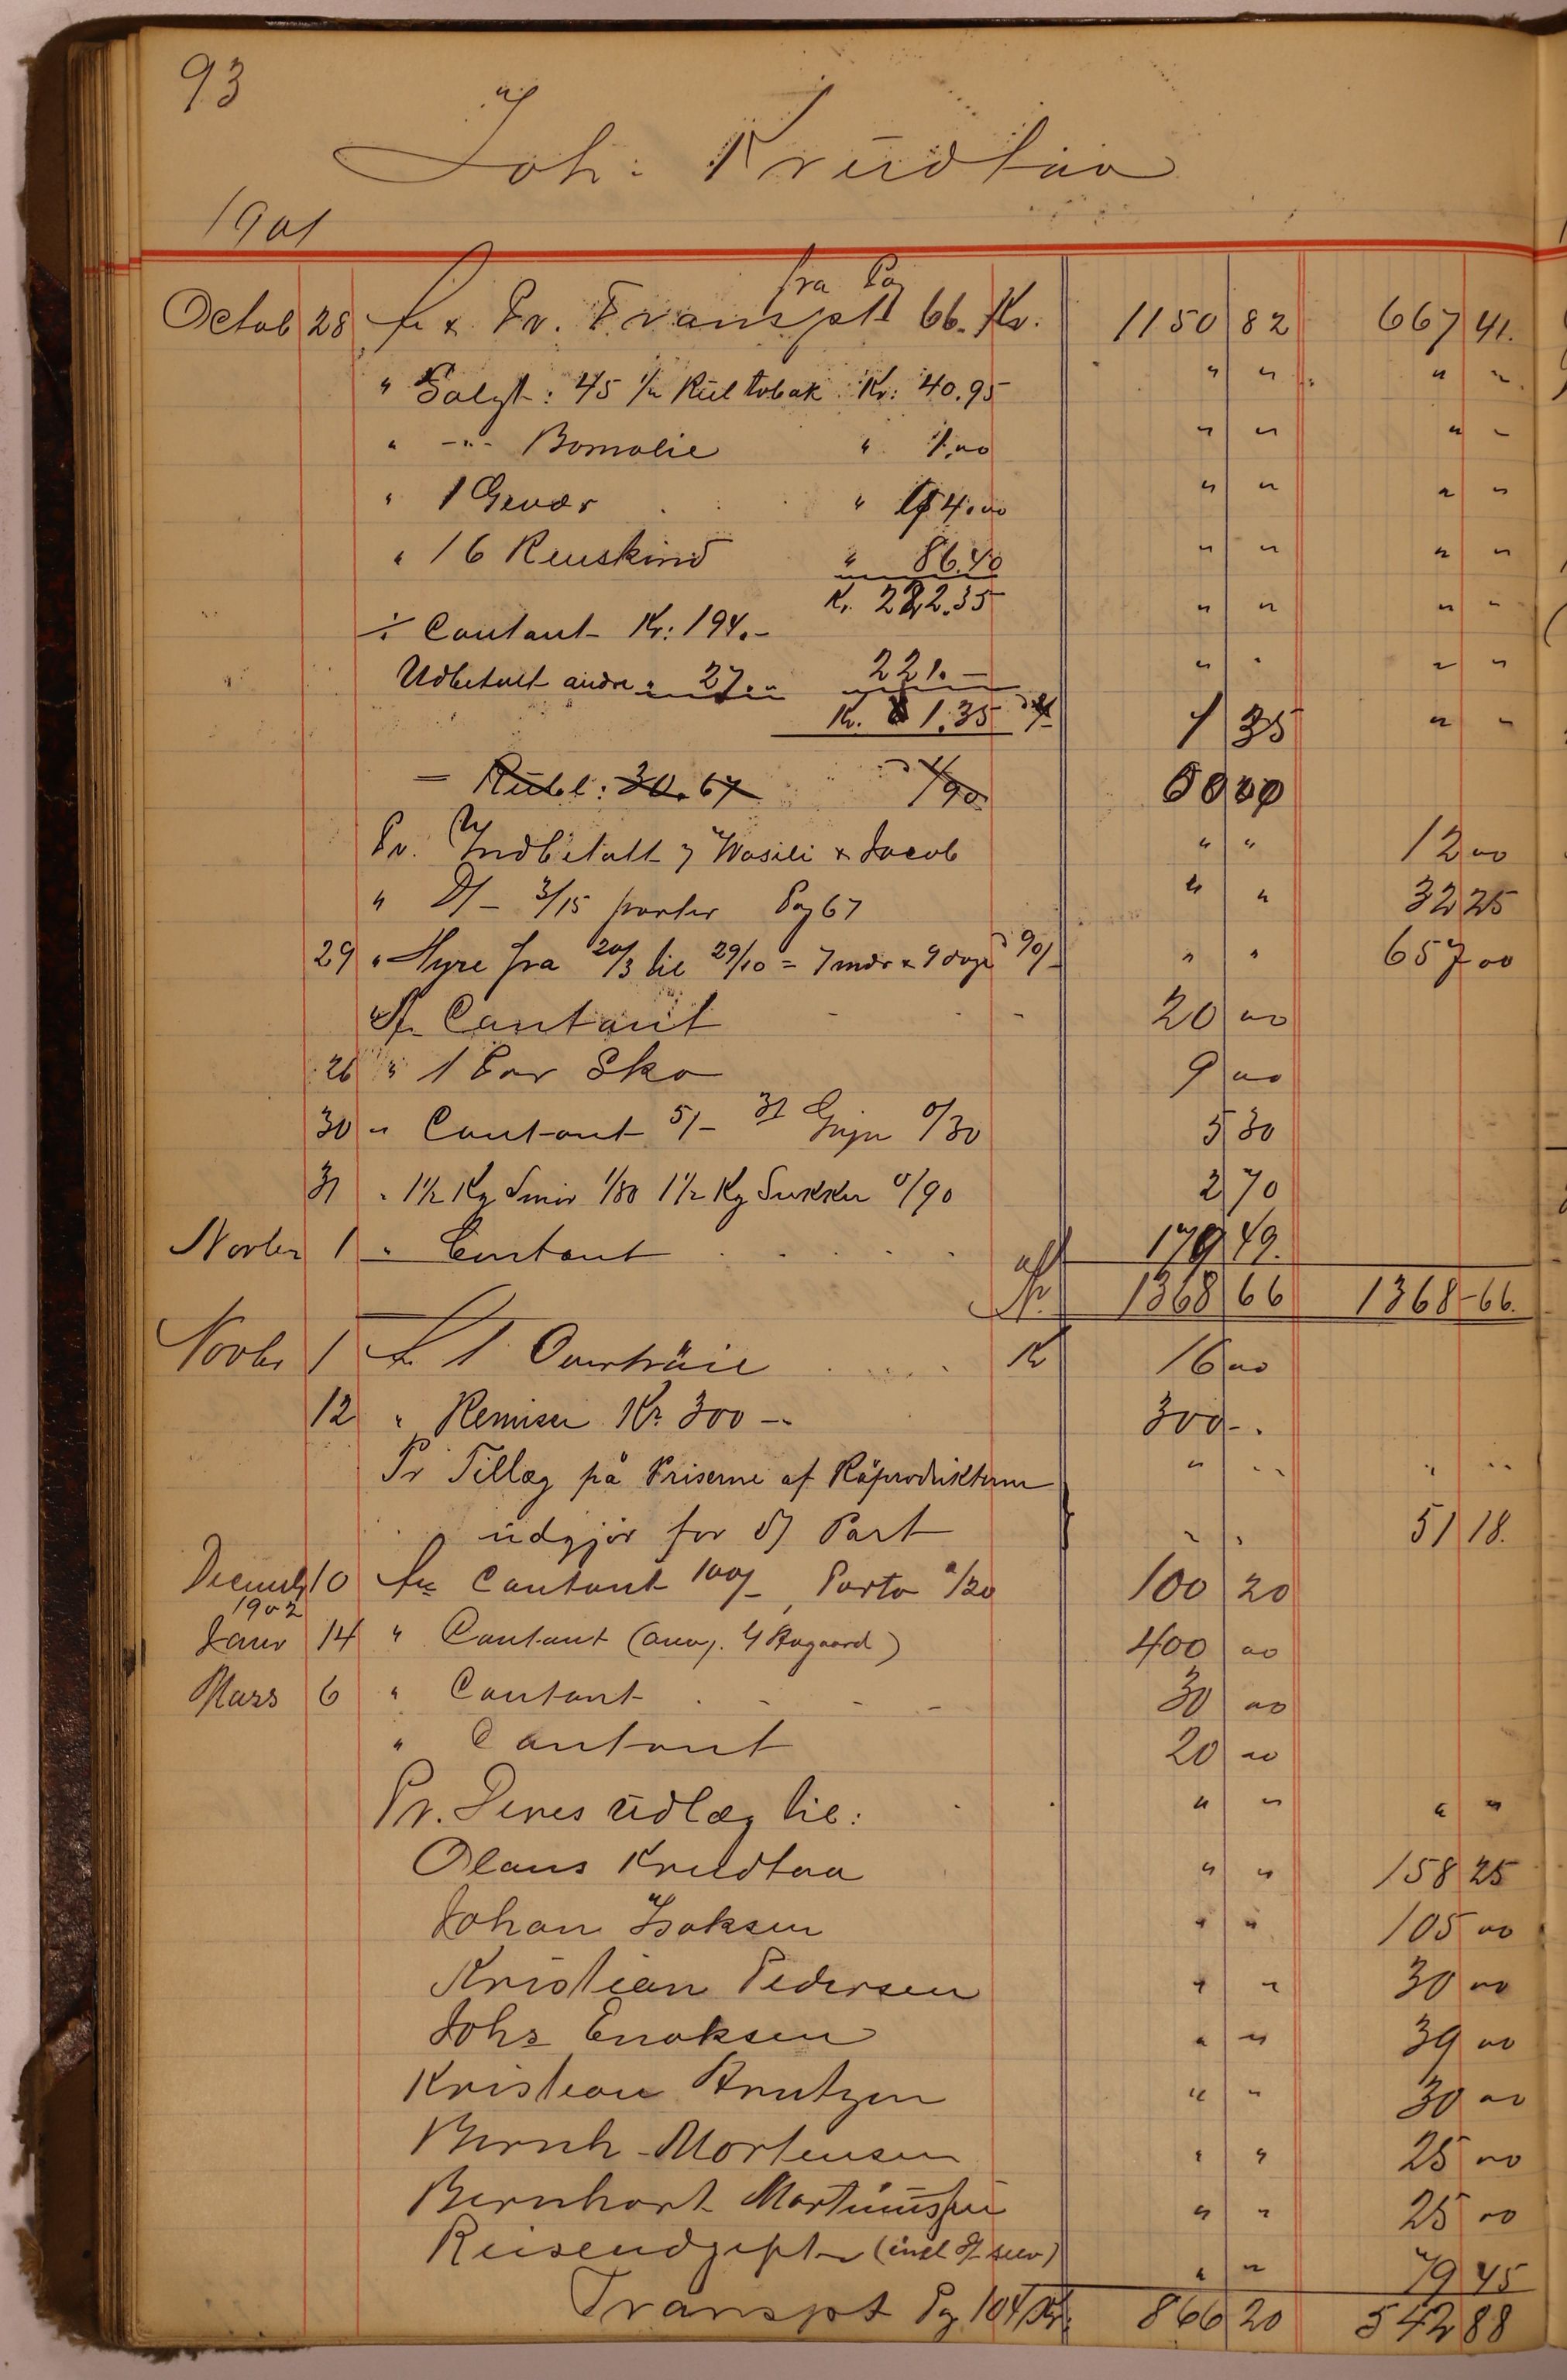 93
Joh: Krüdtaa
1901
fra Pag
Octob 28 Pr. Transpt 66. Kr. 1150 82 667 41.
" Solgt: 45 Rül tobak Kr: 40.95 " " " "
" -"- Bomolie " 1.00 " " " "
" 1 Gevær " 4.00 " " " "
" 16 Renskind " 86.40 " " " "
Kr. 222.35
÷ Contant Kr: 194.- " " " "
Udbetalt andre " 27." 221.— " " " "
Kr. 1.35 1 35 " "
= Rubl: 30.67 1/90
Pr. Indbetalt Wasili & Jacob " " 12 00
" 3/15 parter Pag 67 " " 32 25
29 " Hyre fra 20/3 til 29/10 = 7 mdr & 9 dage 90/- " " 657 00
Contant 20 00
26 " 1 Par Sko 9 00
30 " Contant 5/- 31 0/30 5 30
31 " 1½ Kg Smör 1/80 1½ Kg Sukker 0/90 2 70
Novbr 1 " Contant 179 49.
Kr. 1368 66 1368-66.
Novbr 1 1 Overtröie Kr 16 00
12 " Remisse Kr. 300 -- 300 -.
Pr Tillæg på Priserne af Råprodukterne " " " "
udgjör for D/ Part " " 51 18.
Decemb 10 Contant 100/-, Porto 0/20 100 20
1902
Janr 14 " Contant (Aagaard) 400 00
Mars 6 " Contant 30 00
" Contant 20 00
Pr. Deres Udlæg til: " " " "
Olaus Kreudtaa " " 158 25
Johan Isaksen " " 105 00
Kristian Pedersen " " 30 00
Johs Enoksen " " 39 00
Kristian Arntzen " " 30 00
Bernh. Mortensen " " 25 00
Bernhart Martinussen " " 25 00
Reiseudgifter (inkl D/ selv) " " 79 45
Transpt Pg 104 Kr. 866 20 542 88